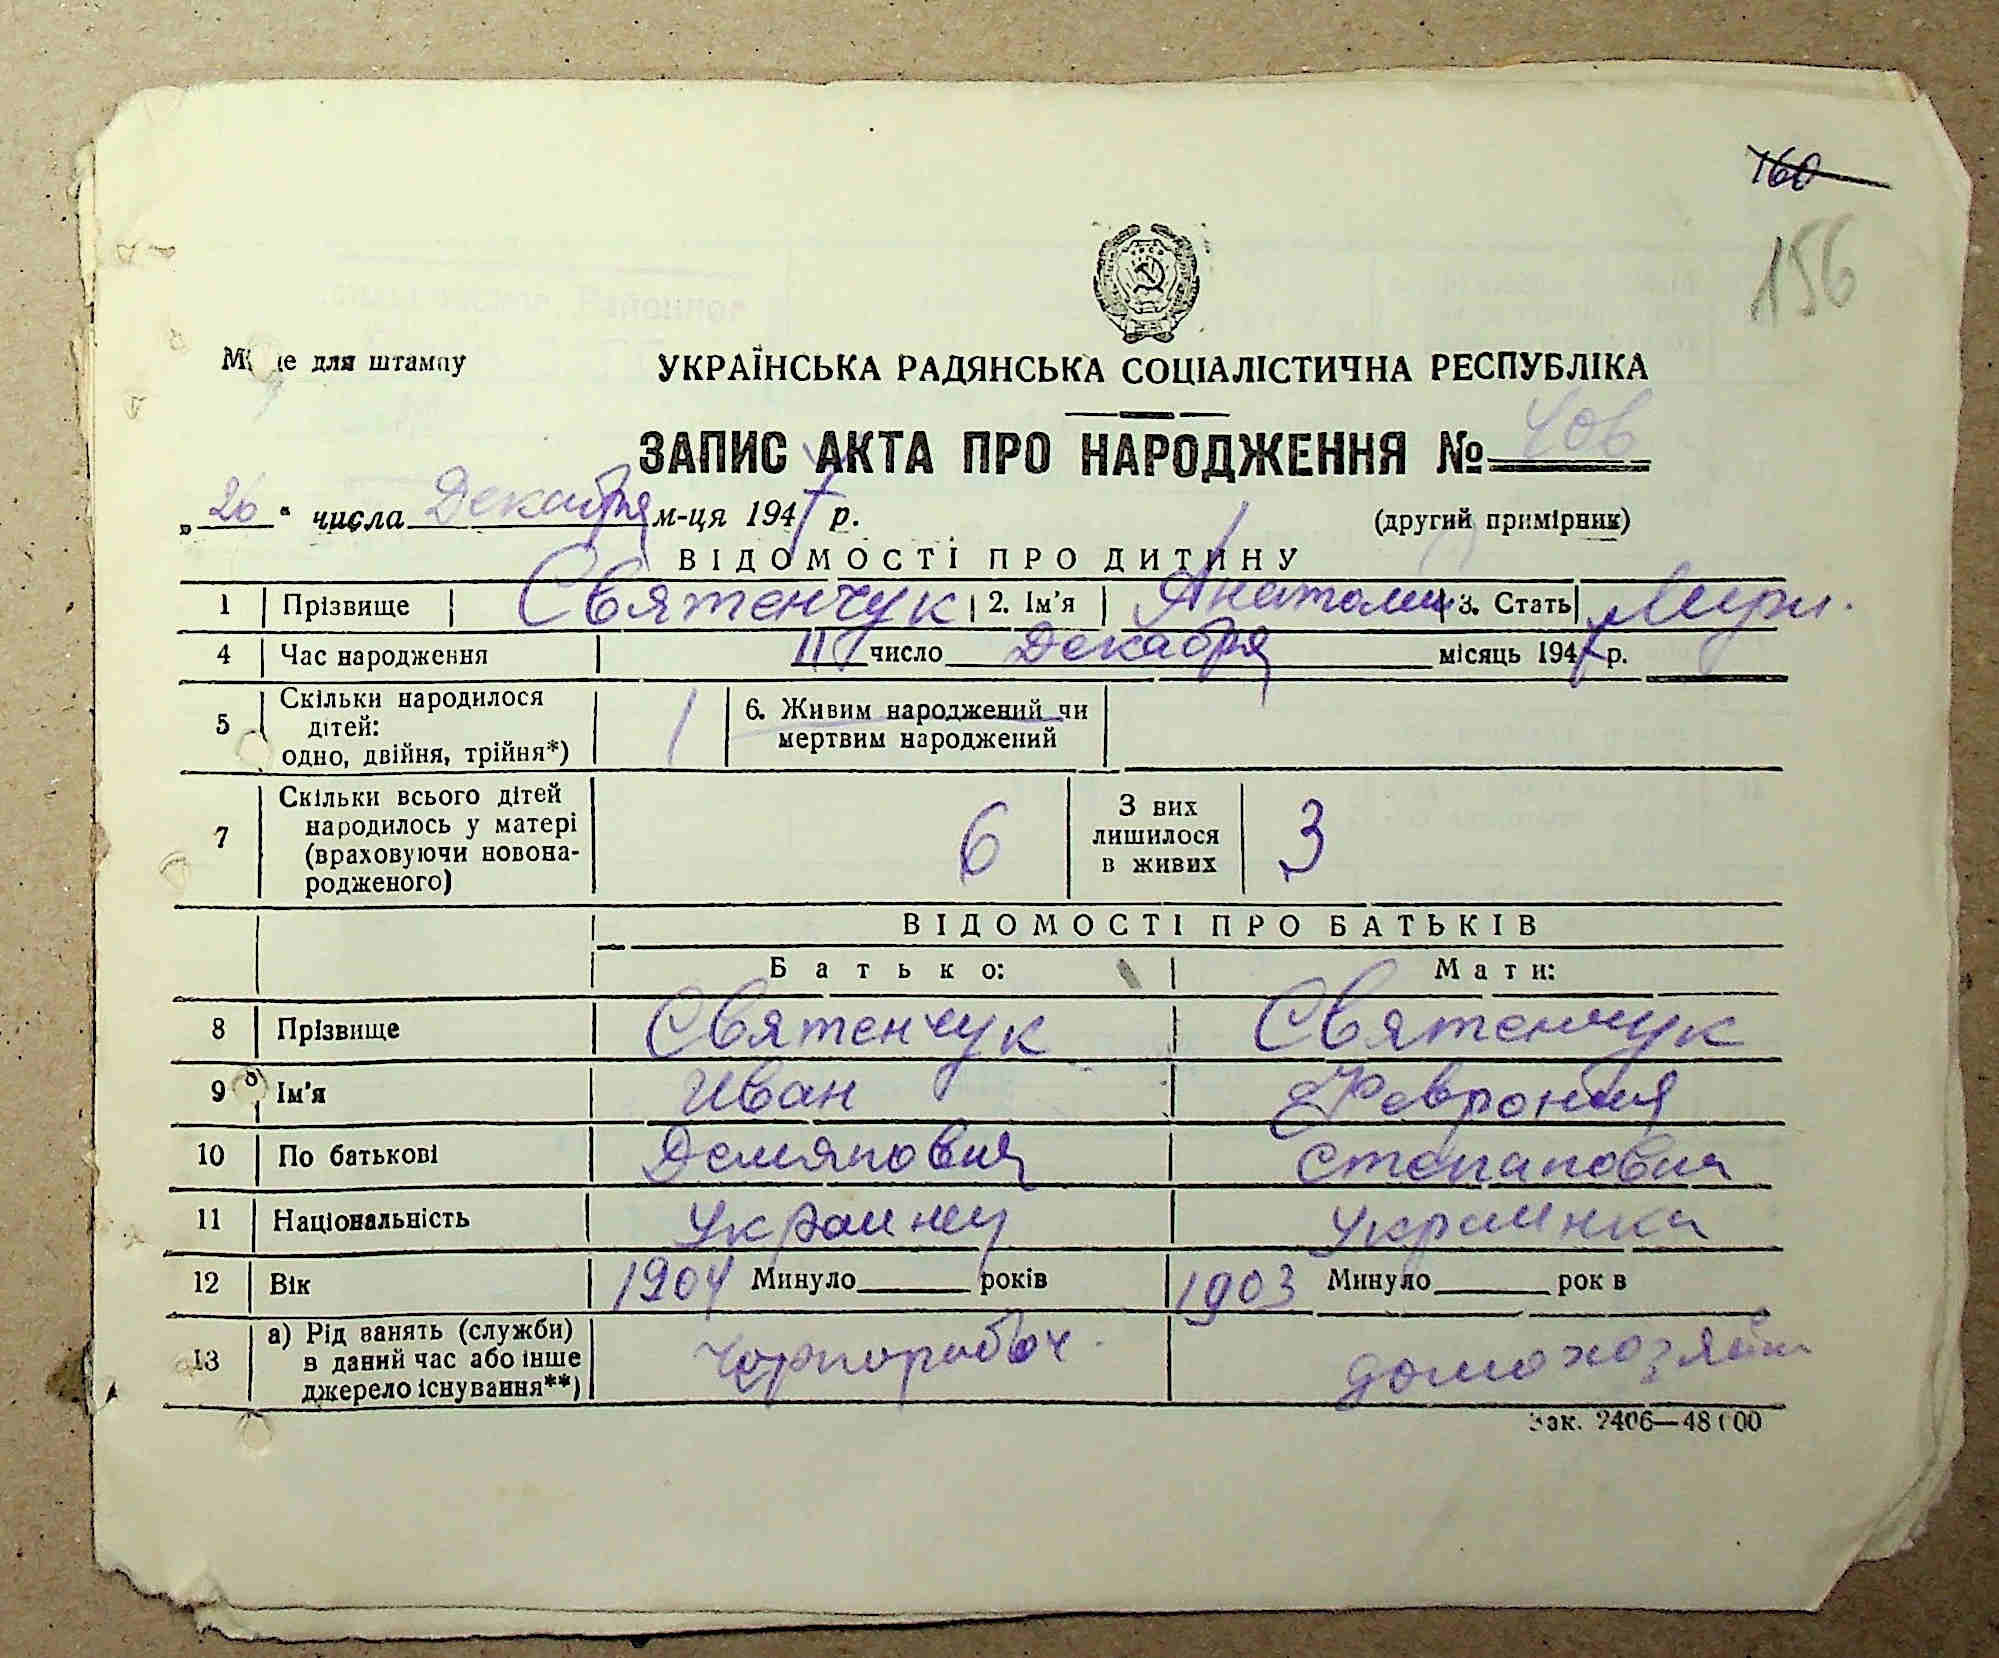 160
156
М  е для штампу
УКРАЇНСЬКА РАДЯНСЬКА СОЦІАЛІСТИЧНА РЕСПУБЛІКА
ЗАПИС АКТА ПРО НАРОДЖЕННЯ № 406
„26“ числа Декабря м-ця 1947 р. (другий примірник)
ВІДОМОСТІ ПРО ДИТИНУ
1 Прізвище Святенчук 2. Ім'я Анатолий 3. Стать
4 Час народження 11 число Декабря місяць 1947 р.
5 Скільки народилося дітей: одно, двійня, трійня*) 1 6. Живим народжений чи мертвим народжений
7 Скільки всього дітей народилось у матері (враховуючи новонародженого) 6 З них лишилося в живих 3
ВІДОМОСТІ ПРО БАТЬКІВ
Батько: Мати:
8 Прізвище Святенчук Святенчук
9 Ім'я Иван Феврония
10 По батькові Демянович Степановна
11 Національність Украинец Украинка
12 Вік 1904 Минуло років 1903 Минуло рок в
13 а) Рід занять (служби) в даний час або інше джерело існування**) Чорнорабоч. домохозяйк
Зак. 2406—48000